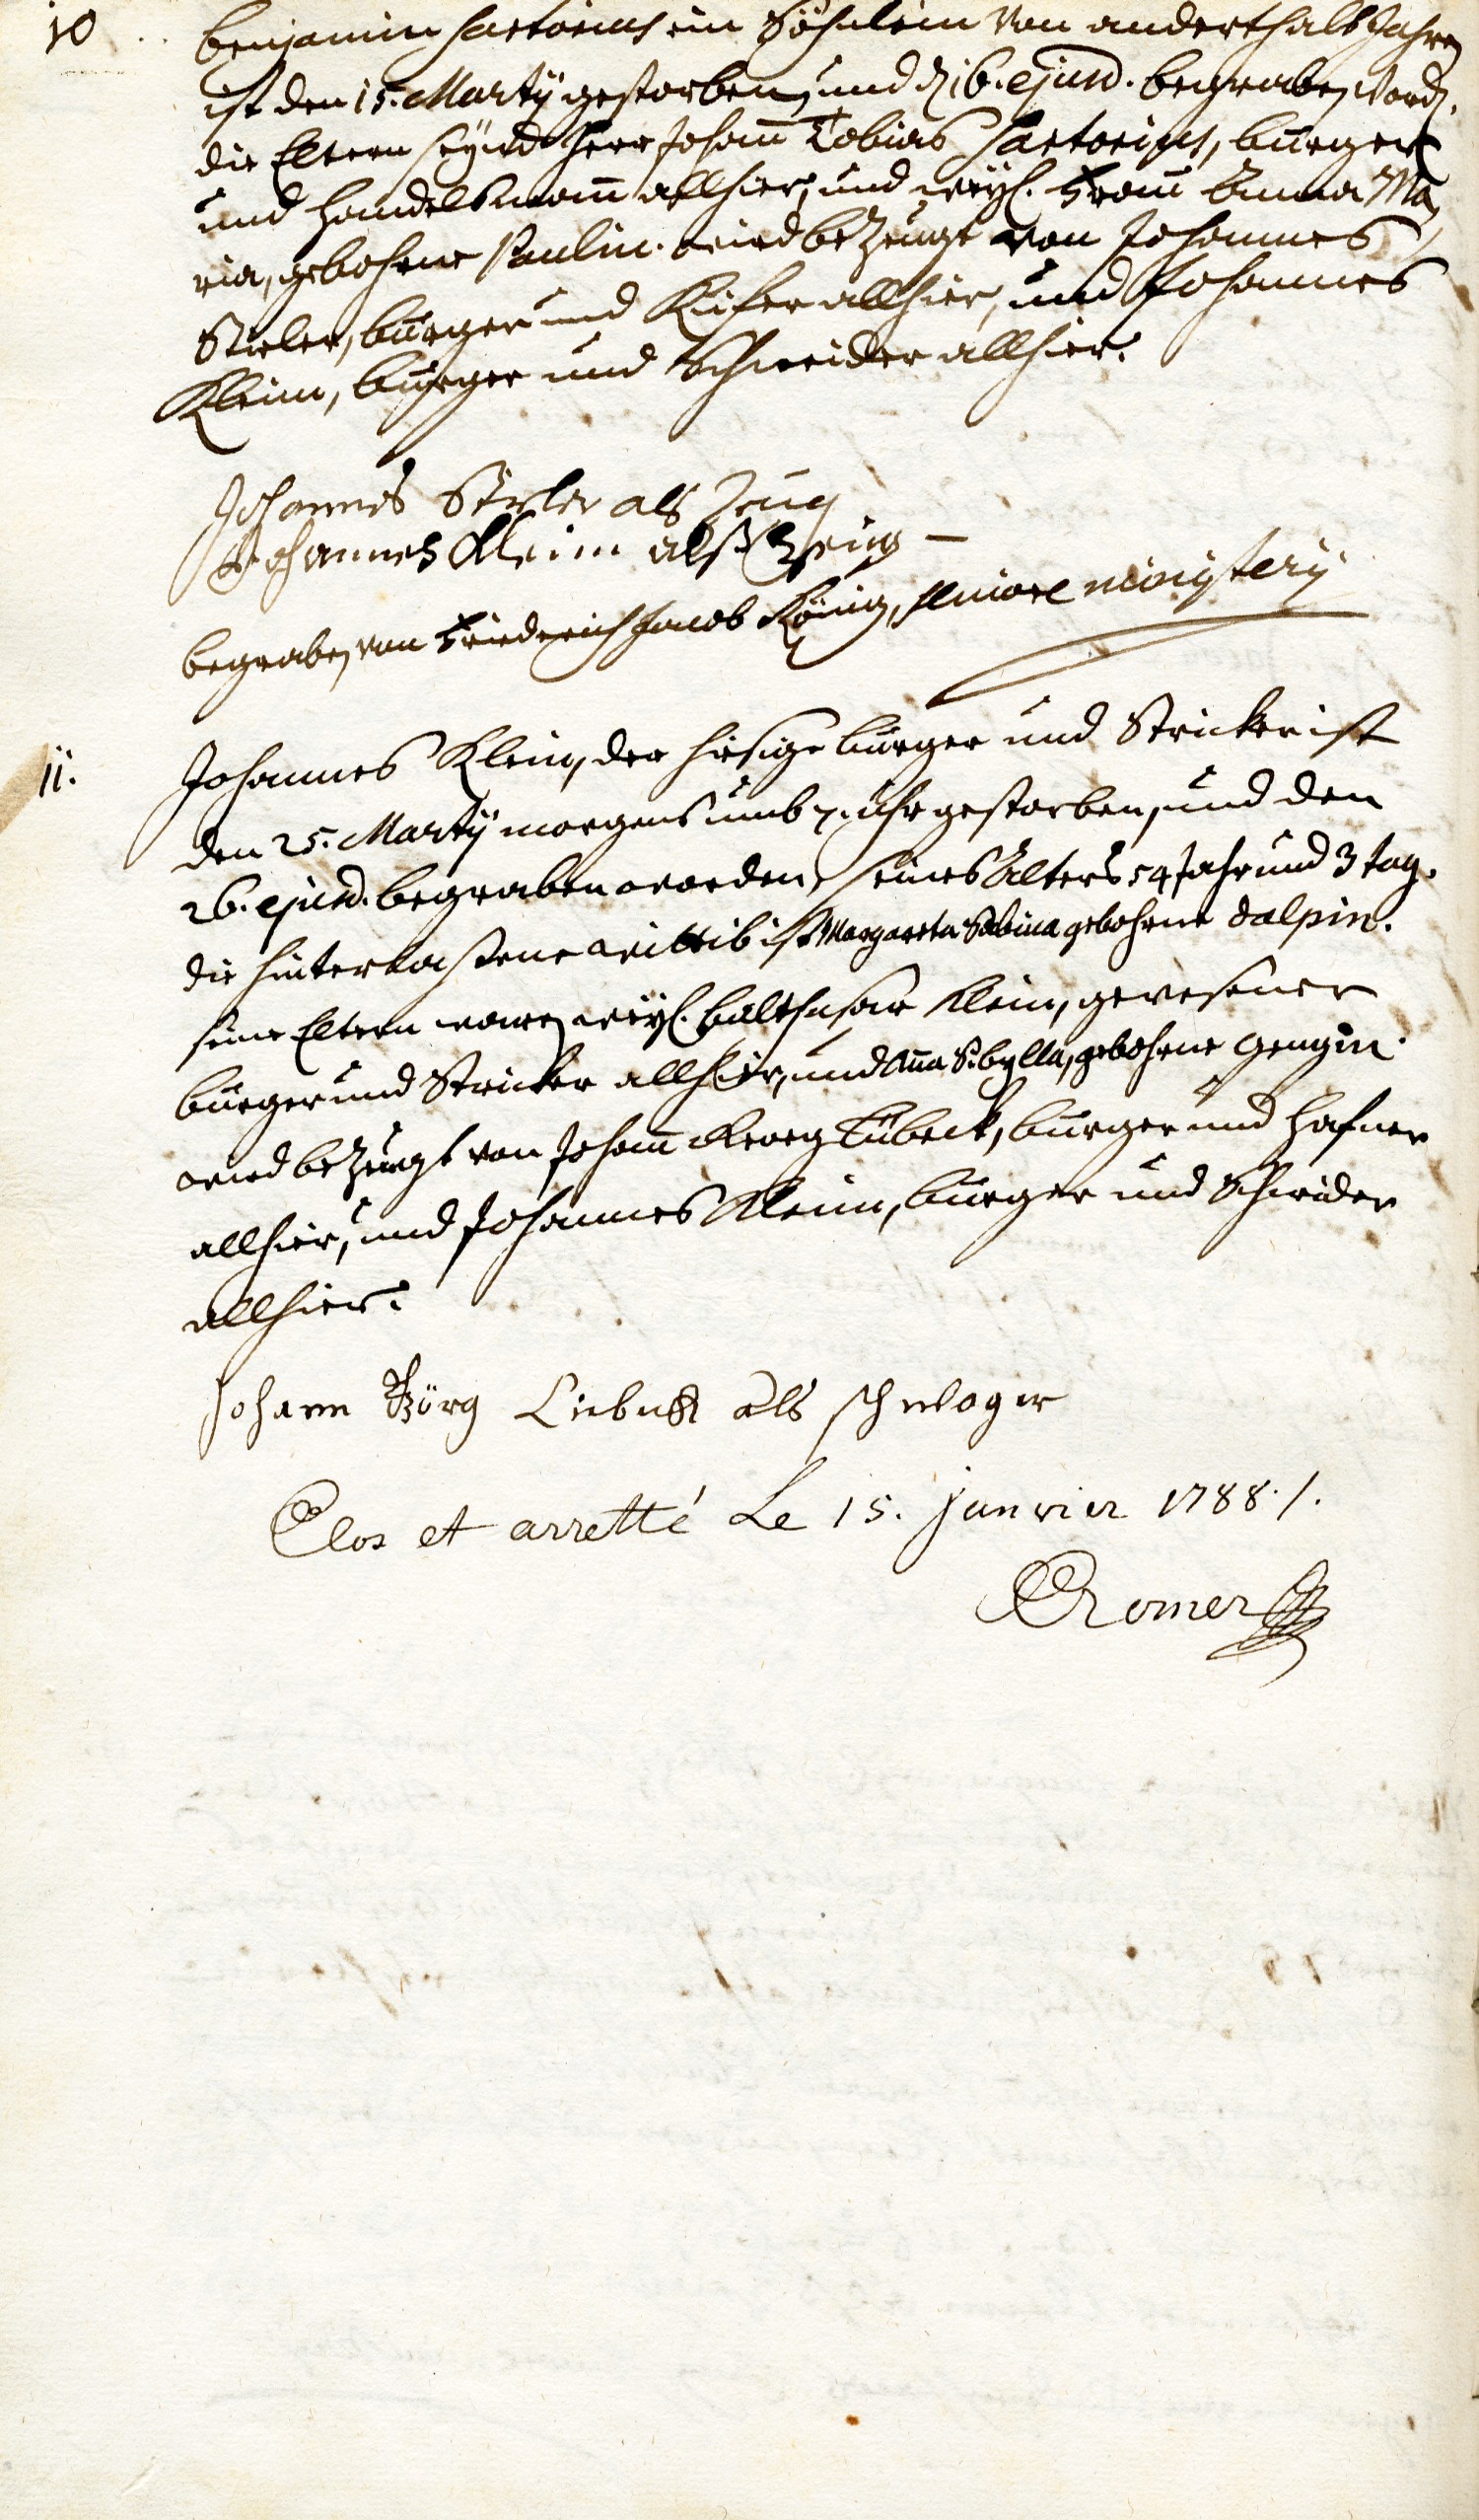 10 Benjamin Sartorius ein Söhnlein von anderthalb Jahren
ist den 15. Martÿ gestorben, und d. 16. ejusd. begraben word.
die Eltern seÿnd Herr Johañ Tobias Sartorius, burger
und Handelsmañ allhier, und weÿl. Frau Anna Ma,
ria, gebohrne Paulin. wird bezeugt von Johannes
Stieler, burger und Kiefer allhier, und Johannes
Kleim, burger und Schneider allhier.
Johannes Stieler als Zeug
Johannes Kleim alß Zeug
begraben von Friederich Jacob König, seniore ministerij
11. Johannes Klein, der hiesige burger und Stricker ist
den 25. Martÿ morgens umb 7. uhr gestorben, und den
26. ejusd. begraben worden, seines Alters 54 Jahr und 3 tag.
die hinterlaßene wittib ist Margareta Sabina gebohrne Dalpin.
seine Eltern waren weÿl. Balthasar Klein, gewesener
burger und Stricker allhier, und Aña Sibylla, gebohrne Gengin.
wird bezeugt von Johañ Georg Lübeck, burger und Hafner
allhier, und Johannes Kleim, burger und Schneider
allhier.
Johann Görg Liebeck als schwoger
Clos et arretté Le 15. janvier 1788./.
Romer